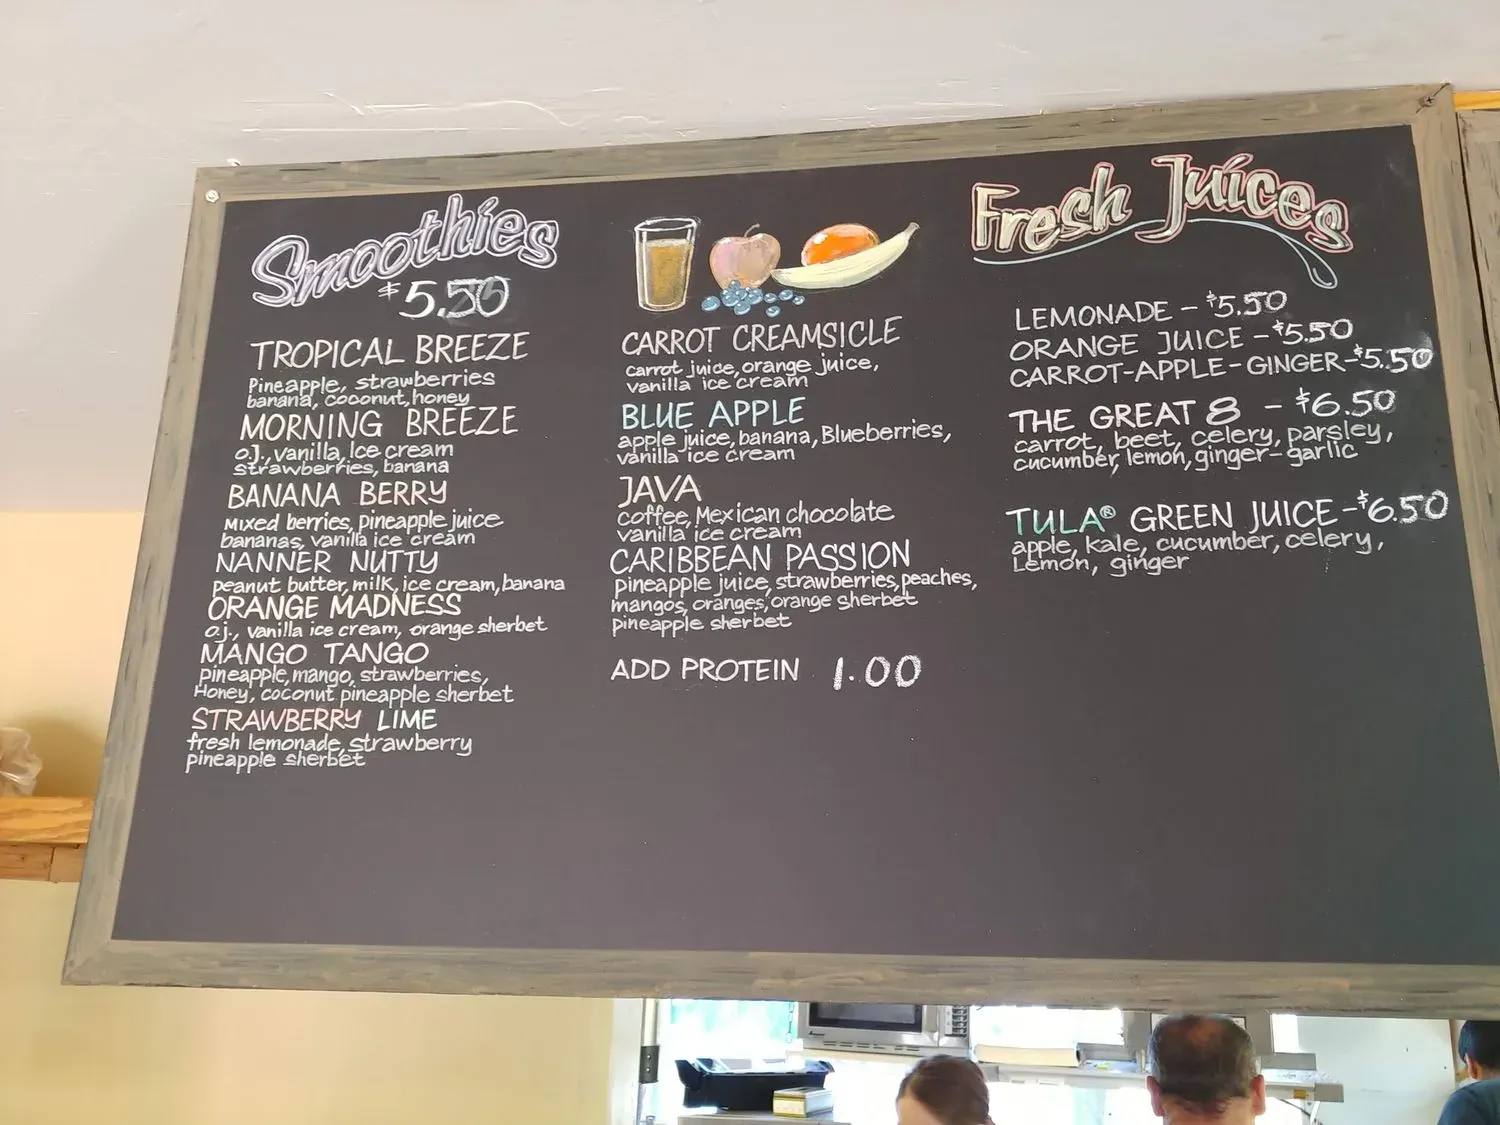 Smoothies
$5.50
TROPICAL BREEZE
Pineapple, strawberries
banana, coconut, honey
MORNING BREEZE
o.J., vanilla, Ice cream
strawberries, banana
BANANA BERRY
Mixed berries, pineapple juice
bananas, vanilla ice cream
NANNER NUTTY
peanut butter, milk, ice cream, banana
ORANGE MADNESS
o.j., vanilla ice cream, orange sherbet
MANGO TANGO
pineapple, mango, strawberries,
Honey, coconut pineapple sherbet
STRAWBERRY LIME
fresh lemonade, strawberry
pineapple sherbet
CARROT CREAMSICLE
carrot juice, orange juice,
vanilla ice cream
BLUE APPLE
apple juice, banana, Blueberries,
vanilla ice cream
JAVA
coffee, Mexican chocolate
vanilla ice cream
CARIBBEAN PASSION
pineapple juice, strawberries, peaches,
mangos, oranges, orange sherbet
pineapple sherbet
ADD PROTEIN 1.00
Fresh Juices
LEMONADE - $5.50
ORANGE JUICE - $5.50
CARROT-APPLE-GINGER-$5.50
THE GREAT 8 - $6.50
carrot, beet, celery, parsley,
cucumber, lemon, ginger-garlic
TULA® GREEN JUICE - $6.50
apple, kale, cucumber, celery,
Lemon, ginger